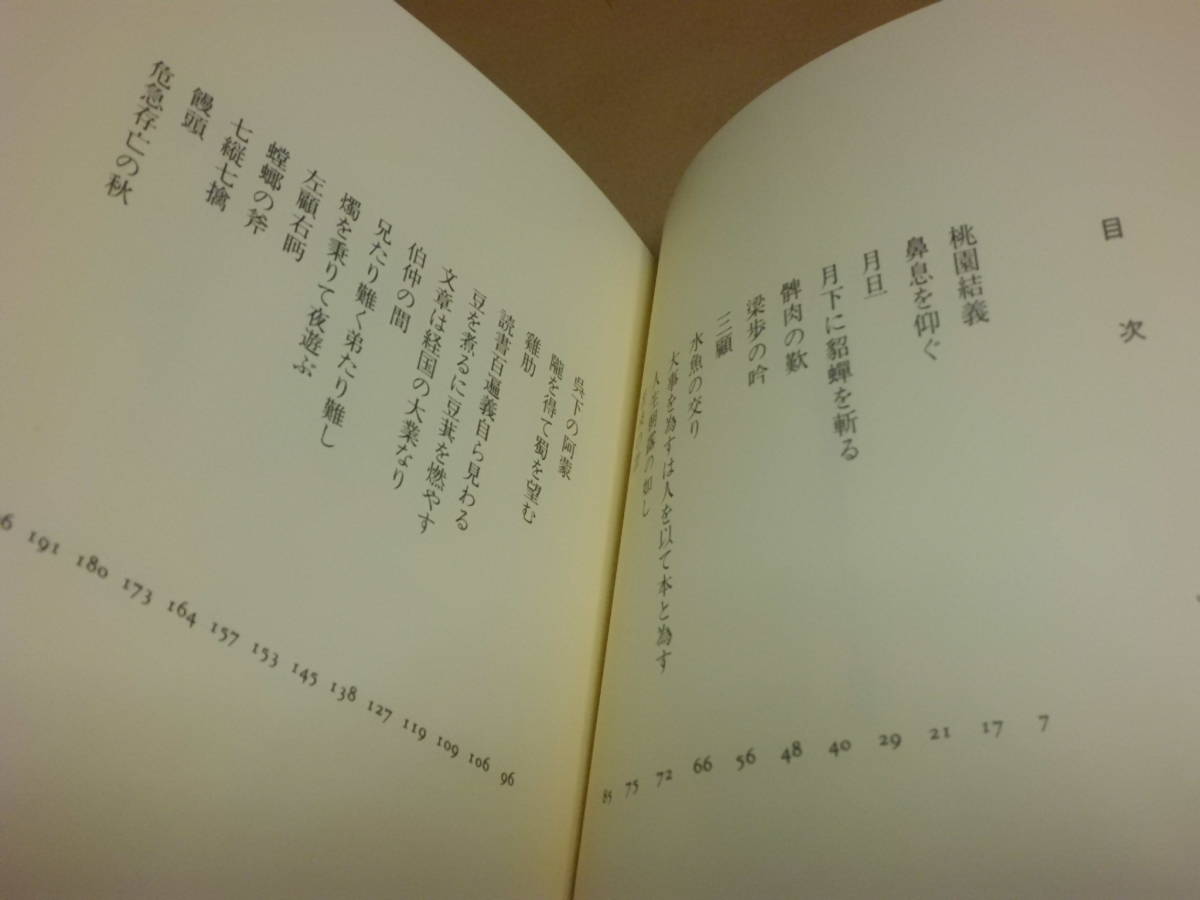 目次
桃園結義 7
鼻息を仰ぐ 17
月旦 21
月下に貂蟬を斬る 29
髀肉の歎 40
梁歩の吟 48
三顧 56
水魚の交り 66
大事を為すは人を以て本と為す 72
人生朝露の如し 75
85
呉下の阿蒙 96
隴を得て蜀を望む 106
雞肋 109
読書百遍義自ら見わる 119
豆を煮るに豆萁を燃やす 127
文章は経国の大業なり 138
伯仲の間 145
兄たり難く弟たり難し 153
燭を秉りて夜遊ぶ 157
左顧右眄 164
螳螂の斧 173
七縦七擒 180
饅頭 191
危急存亡の秋 6